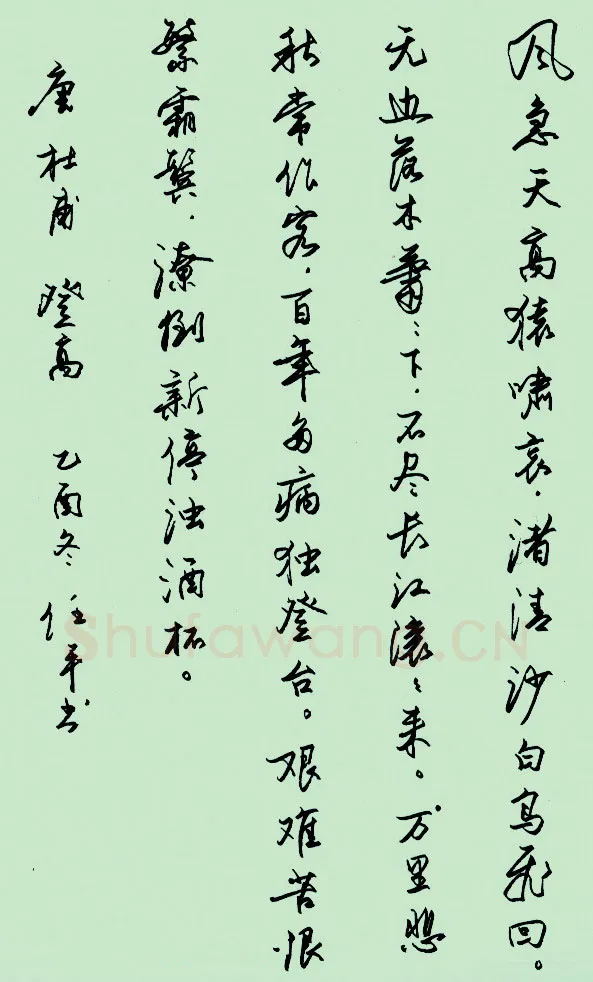 风急天高猿啸哀.渚清沙白鸟飞回。
无边落木萧〻下.不尽长江滚〻来。万里悲
秋常作客.百年多病独登台。艰难苦恨
繁霜鬓.潦倒新停浊酒杯。
唐杜甫 登高 乙酉冬任平书
Shufawang.CN